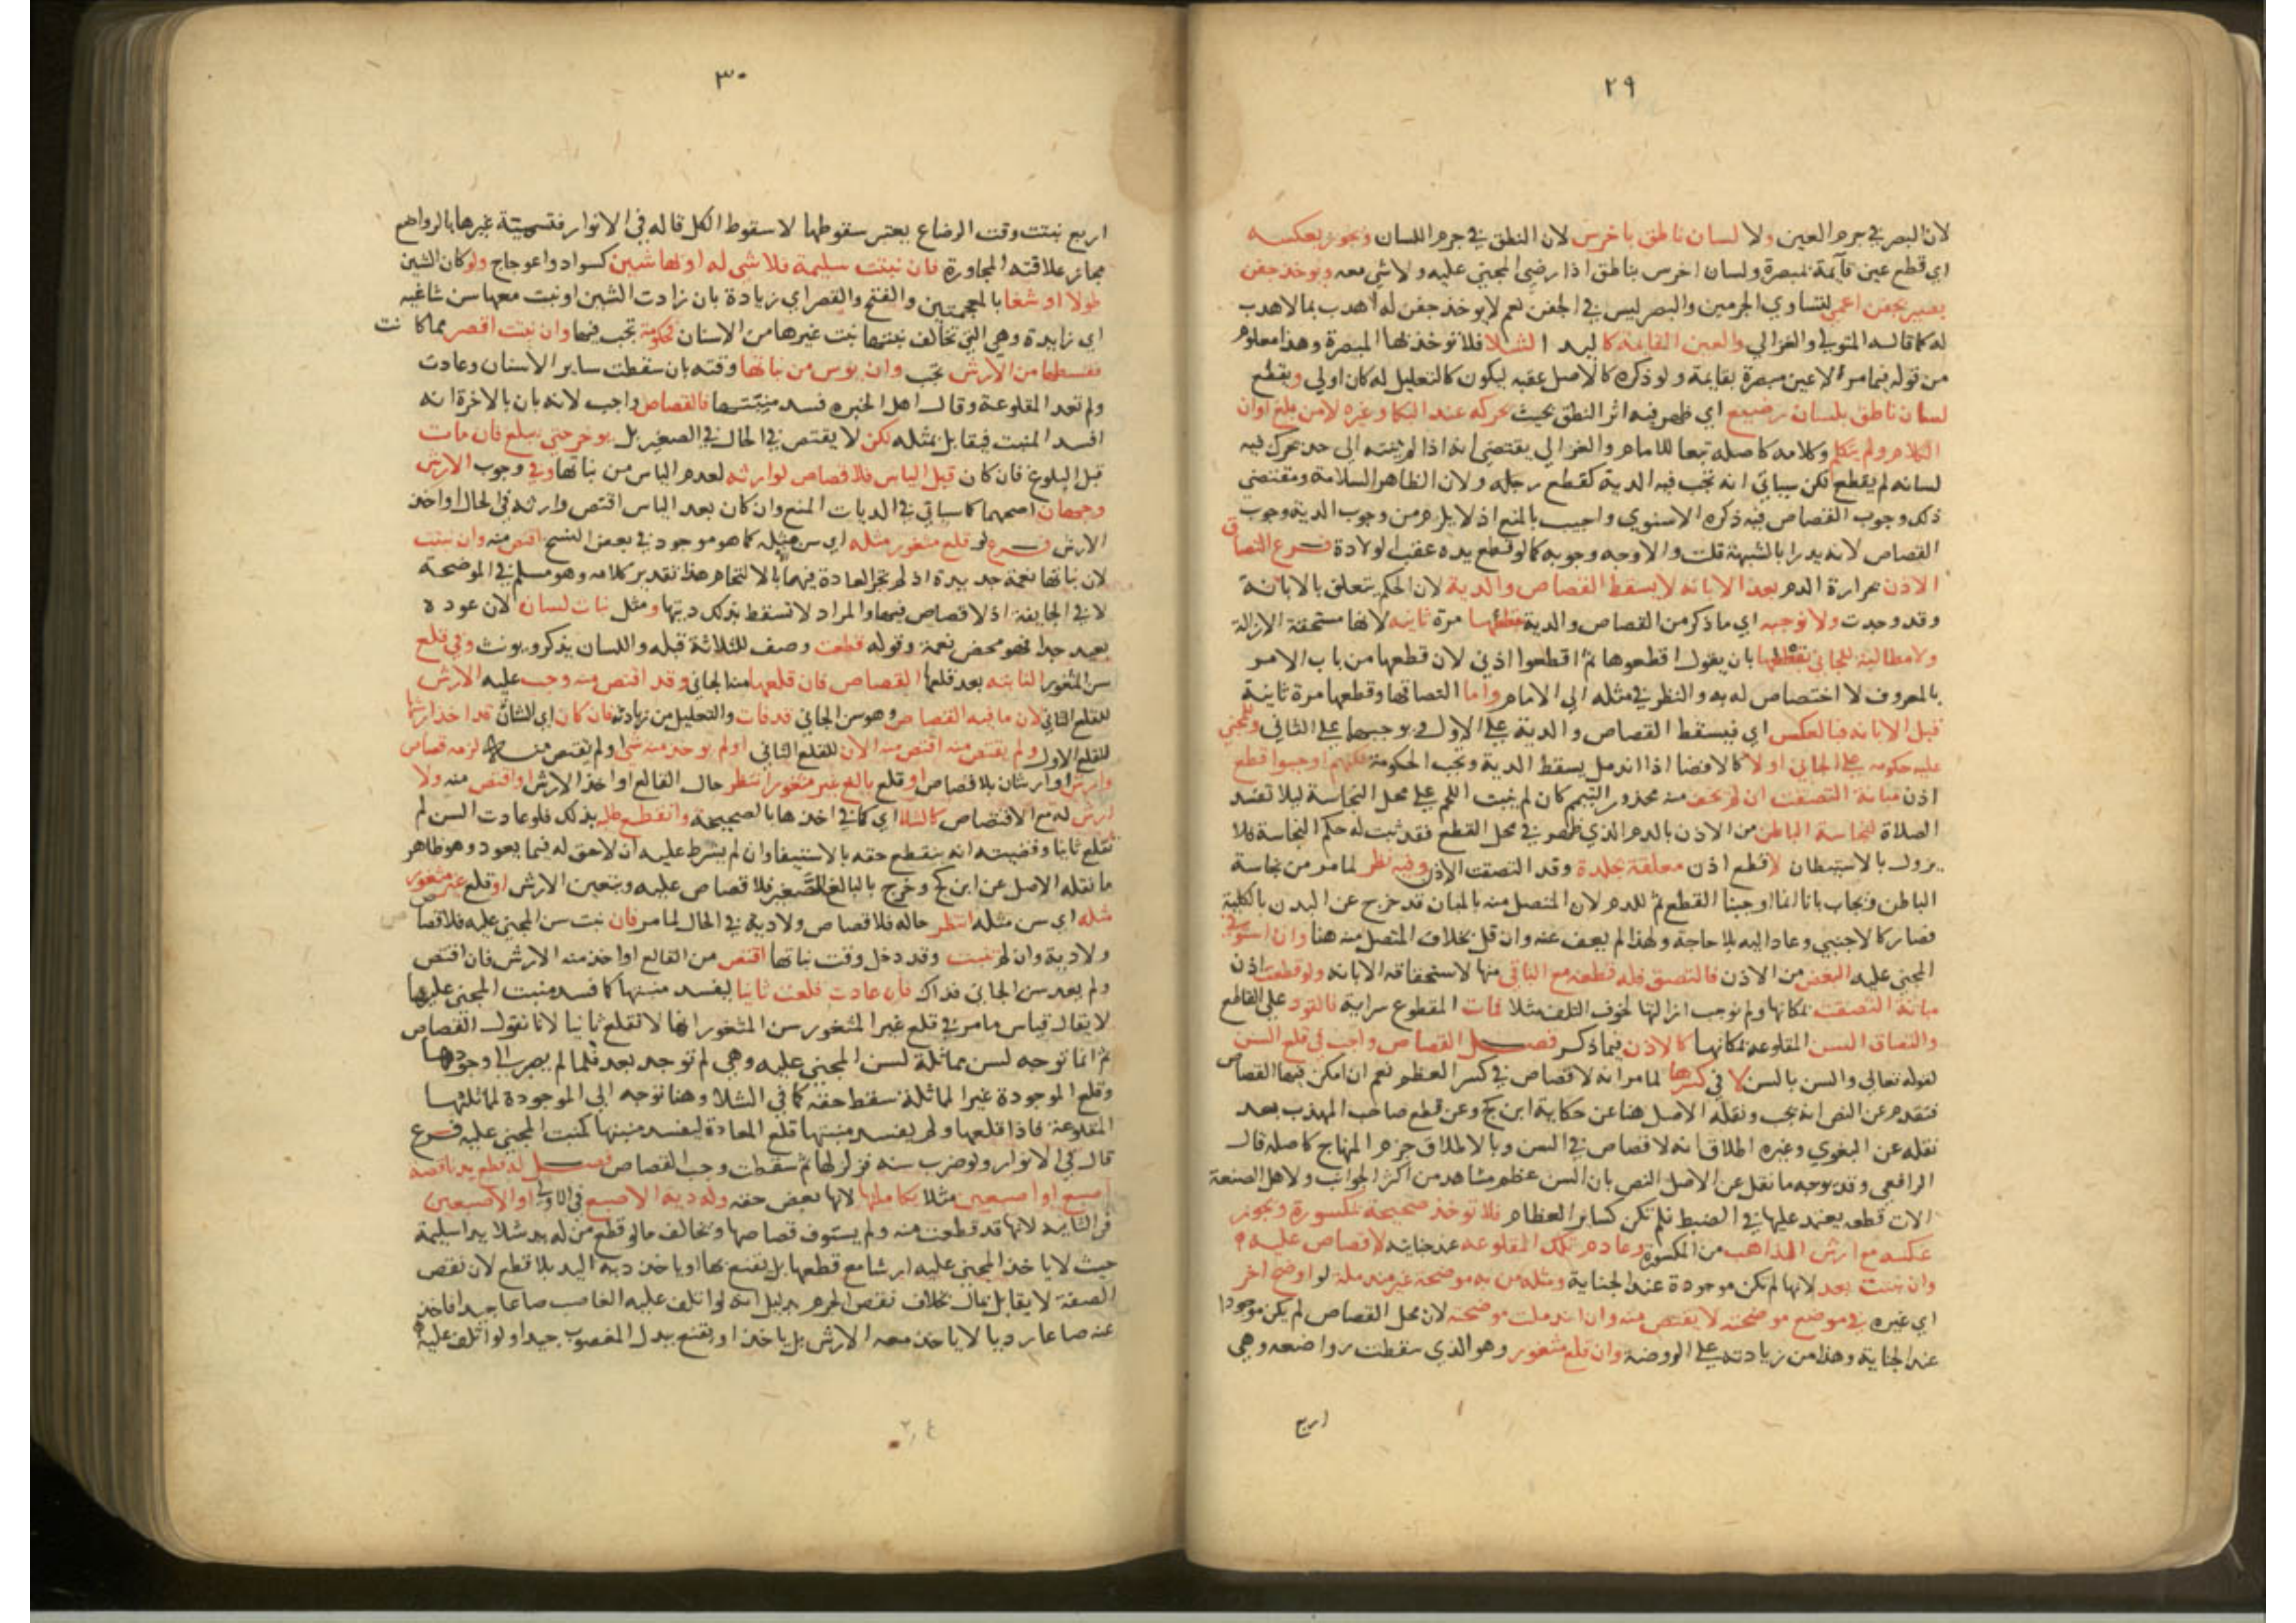 ٢٩
لان البصر في جرم العين ولا لسان ناطق باخرس لان النطق في جرم اللسان ويجوز بعكسه
اي قطع عين قايمة بمبصرة ولسان اخرس بناطق اذا رضي المجني عليه ولا شي معه ويوخذ جفن
بصير بجفن اعمي لتساوي الجرمين والبصر ليس في الجفن نعم لا يوخذ جفن له اهدب بما لا هدب
له كما قاله المتولي والغزالي والعين القايمة كاليد الشلا فلا توخذ بها المبصرة وهذا معلوم
من قوله فيما مر لا عين مبصرة بقايمة ولو ذكره كالاصل عقبه ليكون كالتعليل له كان اولي ويقطع
لسان ناطق بلسان رضيع اي ظهر فيه اثر النطق بحيث يحركه عند البكا وغيره لا من بلغ اوان
الكلام ولم يتكلم وكلامه كاصله تبعا للامام والغزالي يقتضي انه اذا لم ينته الي حد يحرك فيه
لسانه لم يقطع لكن سياتي انه تجب فيه الدية كقطع رجله ولان الظاهر السلامة ومقتضي
ذلك وجوب القصاص فيه ذكره الاسنوي واجيب بالمنع اذ لا يلزم من وجوب الدية وجوب
القصاص لانه يدرا بالشبهة قلت والاوجه وجوبه كما لو قطع يده عقب الولادة فرع التصاق
الاذن بحرارة الدم بعد الابانة لا يسقط القصاص والدية لان الحكم يتعلق بالابانة
وقد وجدت ولا توجبه اي ما ذكر من القصاص والدية قطعها مرة ثانيه لانها مستحقة الازالة
ولا مطالبة للجاني بقطعها بان يقول اقطعوها ثم اقطعوا اذني لان قطعها من باب الامر
بالمعروف لا اختصاص له به والنظر في مثله الي الامام واما التصاقها وقطعها مرة ثانية
قبل الابانة فبالعكس اي فيسقط القصاص والدية علي الاول ويوجبهما علي الثاني وللمجني
عليه حكومه علي الجاني اولا كالافضا اذا اندمل يسقط الدية وتجب الحكومة لكنهم اوجبوا قطع
اذن مبانة التصقت ان لم يخف منه محذور التيمم كان لم ينبت اللحم علي محل النجاسة ليلا تفسد
الصلاة لنجاسة الباطن من الاذن بالدم الذي ظهر في محل القطع فقد ثبت له حكم النجاسة فلا
يزول بالاستبطان لا قطع اذن معلقة بجلدة وقد التصقت الاذن وفيه نظر لما مر من نجاسة
الباطن ويجاب بانا انما اوجبنا القطع ثم للدم لان المتصل منه بالمبان قد خرج عن البدن بالكلية
فصار كالاجنبي وعاد اليه بلا حاجة ولهذا لم يعف عنه وان قل بخلاف المتصل منه هنا وان استوفي
المجني عليه البعض من الاذن فالتصق فله قطعه مع الباقي منها لاستحقاقه الابانه ولو قطعت اذن
مبانة التصقت بمكانها ولم نوجب ازالتها لخوف التلف مثلا فمات المقطوع سراية فالقود علي القاطع
والتصاق السن المقلوعه بمكانها كالاذن فيما ذكر فصل القصاص واجب في قلع السن
لقوله تعالي والسن بالسن لا في كسرها لما مر انه لا قصاص في كسر العظم نعم ان امكن فيها القصاص
فتقدم عن النص انه يجب ونقله الاصل هنا عن حكاية ابن كج وعن قطع صاحب المهذب بعد
نقله عن البغوي وغيره اطلاق انه لا قصاص في السن وبالاطلاق جزم المنهاج كاصله قال
الرافعي وقد يوجه ما نقل عن الاصل النص بان السن عظم مشاهد من اكثر الجوانب ولاهل الصنعة
الات قطعه يعتمد عليها في الضبط فلم تكن كساير العظام فلا توخذ صحيحة بمكسورة ويجوز
عكسه مع ارش الذاهب من المكسورة وعادم تلك المقلوعه عند جنايته لا قصاص عليه
وان نبتت بعد لانها لم تكن موجودة عند الجناية ومثله من به موضحة غير مندملة لو اوضح اخر
اي غيره في موضع موضحته لا يقتص منه وان اندملت موضحته لان محل القصاص لم يكن موجودا
عند الجناية وهذا من زيادته علي الروضة وان قلع مثغور وهو الذي سقطت رواضعه وهي
اربع
٣٠
اربع نبتت وقت الرضاع يعتبر سقوطها لا سقوط الكل قاله في الانوار فتسمية غيرها بالرواضع
مجاز علاقته المجاورة فان نبتت سليمة فلا شي له او بها شين كسواد واعوجاج ولو كان الشين
طولا او شغا بالمعجمتين والفتح والقصر اي زيادة بان زادت الشين او نبت معها سن شاغيه
اي زايدة وهي التي تخالف نبتتها نبت غيرها من الاسنان فحكومة تجب فيها وان نبتت اقصر مما كانت
فقسطها من الارش تجب وان يوس من نباتها وقته بان سقطت ساير الاسنان وعادت
ولم تعد المقلوعة وقال اهل الخبره فسد منبتها فالقصاص واجب لانه بان بالاخرة انه
افسد المنبت فيقابل بمثله لكن لا يقتص في الحال في الصغير بل يوخر حتي يبلغ فان مات
قبل البلوغ فان كان قبل الياس فلا قصاص لوارثه لعدم الياس من نباتها وفي وجوب الارش
وجهان اصحهما كما سياتي في الديات المنع وان كان بعد الياس اقتص وارثه في الحال او اخذ
الارش فرع لو قلع مثغور مثله اي سن مثله كما هو موجود في بعض النسخ اقتص منه وان نبتت
لان نباتها نعمة جديدة اذ لم تجر العادة فيهما بالالتحام هذا تقدير كلامه وهو مسلم في الموضحة
لا في الجايفة اذ لا قصاص فيها والمراد لا تسقط بذلك ديتها ومثل نبات لسان لان عوده
بعيد جدا فهو محض نعمة وقوله قطعت وصف للثلاثة قبله واللسان يذكر ويونث وفي قلع
سن المثغور النابته بعد قلعها القصاص فان قلعها منه الجاني وقد اقتص منه وجب عليه الارش
للقلع الثاني لان ما فيه القصاص وهو سن الجاني قد فات والتعليل من زيادته فان كان اي الشان قد اخذ ارشها
للقلع الاول ولم يقتص منه اقتص منه الان للقلع الثاني او لم يوخذ منه شيا ولم يقتص منه لزمه قصاص
وارش او ارشان بلا قصاص او قلع بالغ غير مثغور انتظر حال القالع او اخذ الارش او اقتص منه ولا
ارش له مع الاقتصاص كالشلا اي كما في اخذها بالصحيحة وانقطع طلبه بذلك فلو عادت السن لم
تقلع ثانيا وقضيته انه ينقطع حقه بالاستيفا وان لم يشرط عليه ان لا حق له فيما يعود وهو ظاهر
ما نقله الاصل عن ابن كج وخرج بالبالغ الصغير فلا قصاص عليه ويتعين الارش او قلع غير مثغور
مثله اي سن مثله انتظر حاله فلا قصاص ولا دية في الحال لما مر فان نبت سن المجني عليه فلا قصاص
ولا دية وان لم تنبت وقد دخل وقت نباتها اقتص من القالع او اخذ منه الارش فان اقتص
ولم يعد سن الجاني فذاك فان عادت قلعت ثانيا ليفسد منبتها كما فسد منبت المجني عليها
لا يقال قياس ما مر في قلع غير المثغور سن المثغور انها لا تقلع ثانيا لانا نقول القصاص
ثم انما توجه لسن مماثلة لسن المجني عليه وهي لم توجد بعد فلما لم يصبر الي وجودها
وقلع الموجودة غير المماثلة سقط حقه كما في الشلا وهنا توجه الي الموجودة لمماثلتها
المقلوعة فاذا قلعها ولم يفسد منبتها قلع المعادة ليفسد منبتها كمنبت المجني عليه فرع
قال في الانوار ولو ضرب سنه فزلزلها ثم سقطت وجب القصاص فصل له قطع يد ناقصه
اصبع او اصبعين مثلا بكاملها لانها بعض حقه وله دية الاصبع في الاولي او الاصبعين
في الثانيه لانها قد قطعت منه ولم يستوف قصاصها ويخالف ما لو قطع من له يد شلا يدا سليمة
حيث لا ياخذ المجني عليه ارشا مع قطعها بل يقنع بها او ياخذ دية اليد بلا قطع لان نقص
الصفة لا يقابل بمال بخلاف نقص الجرم بدليل انه لو اتلف عليه الغاصب صاعا جيدا فاخذ
عنه صاعا رديا لا ياخذ معه الارش بل ياخذ او يقنع ببدل المغصوب جيدا ولو اتلف عليه